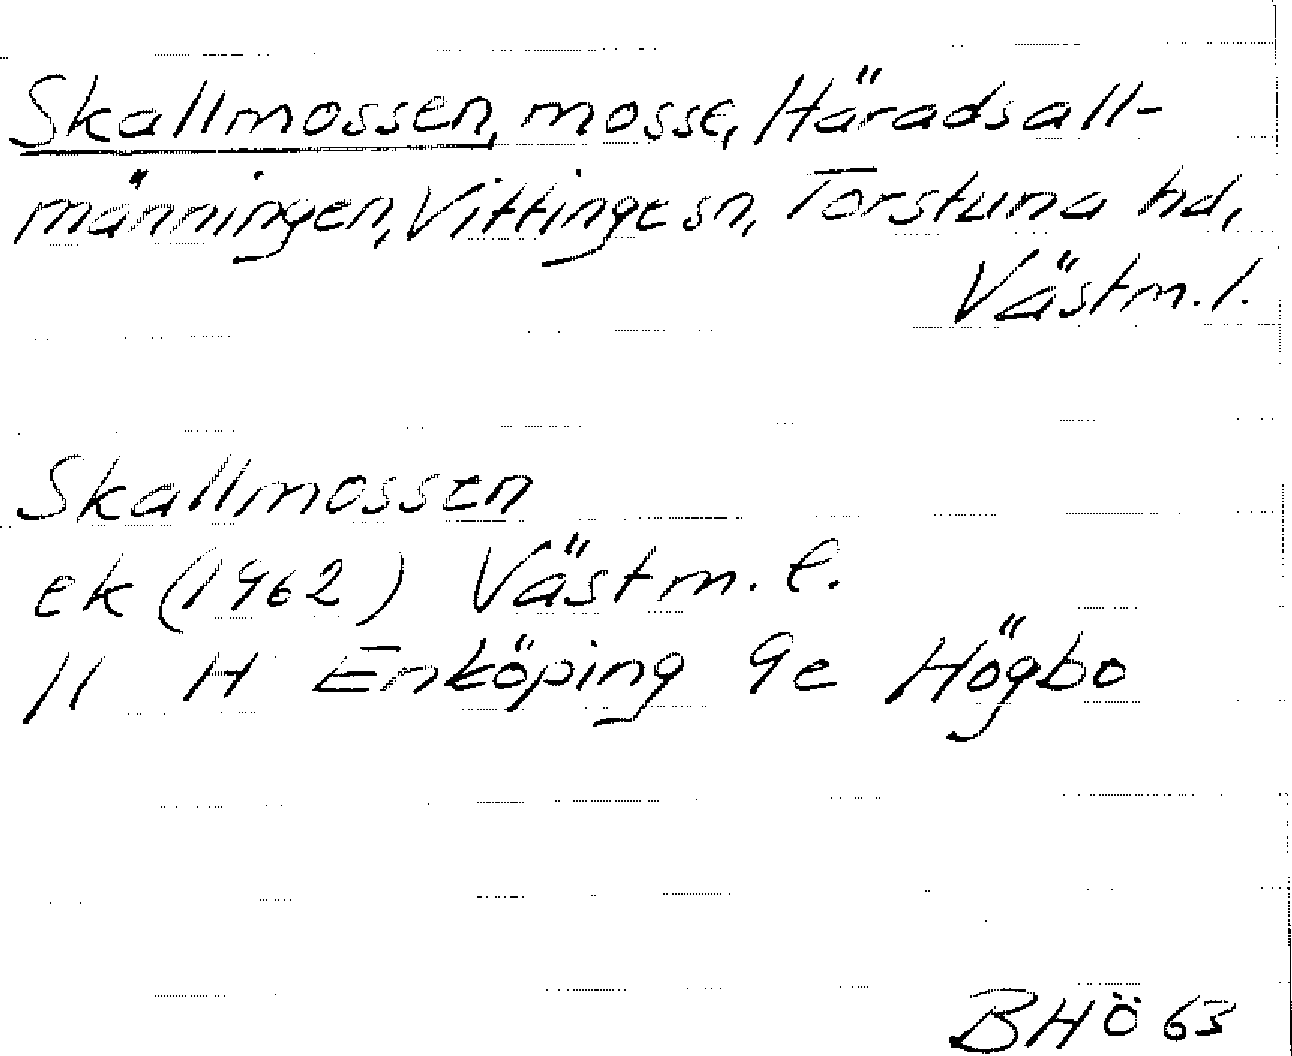 Skallmossen, mosse, Häradsall-
männingen, Vittinge sn, Torstuna hd,
Västm. l.
Skallmossen
ek (1962) Västm. l.
11 H Enköping 9e Högbo
BHÖ 63